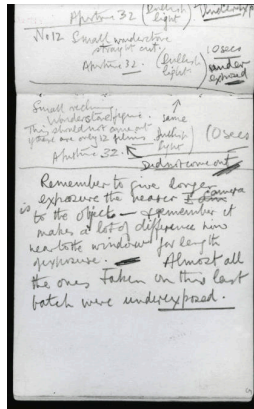 Aperture 32 (Dullish light) Underexp
No 12 Small understone
straight out.
Aperture 32. (Dullish light) 10 secs
under exposed
Small
understone
This should not come out
there are only 12 films
Aperture 32.
same
Dullish
light
10 secs
Did not come out
Remember to give longer
exposure the nearer camera
is to the object — remember it
makes a lot of difference how
near to the window for length
of exposure. Almost all
the ones taken on this last
batch were underexposed.